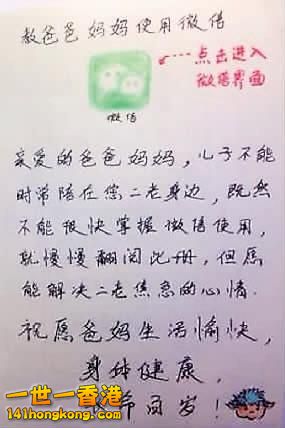 教爸爸妈妈使用微信
点击进入
微信界面
微信
亲爱的爸爸妈妈，儿子不能
时常陪在您二老身边，既然
不能很快掌握微信使用，
就慢慢翻阅此册，但愿
能解决二老焦急的心情.
祝愿爸妈生活愉快，
身体健康，
长命百岁！
一世一香港
141hongkong.com